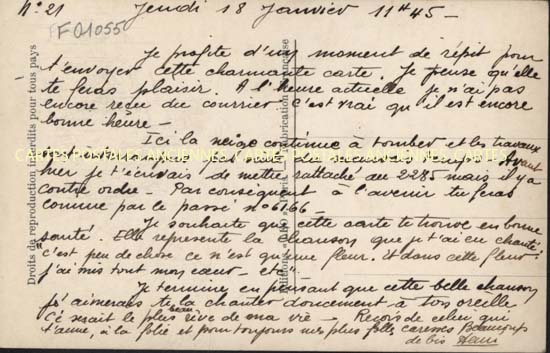 N° 21 Jeudi 18 Janvier 11H45 -
FQ1055
Je profite d'un moment de répit pour
t'envoyer cette charmante carte. Je pense qu'elle
te feras plaisir. A l'heure actuelle je n'ai pas
encore reçu du courrier. C'est vrai qu'il est encore
bonne heure -
Ici la neige continue à tomber et les travaux
Avant
hier je t'écrivais de mettre rattaché au 2285 mais il y a
contre ordre - Par conséquent à l'avenir tu feras
comme par le passé n° 6166 -
Je souhaite que cette carte te trouve en bonne
santé. Elle représente la chanson que je t'ai en chanté
c'est peu de chose ce n'est qu'une fleur. Et dans cette fleur
j'ai mis tout mon cœur - etc"
Je termine en pensant que cette belle chanson
j'aimerais te la chanter doucement à tes oreille
Ce serait le plus beau rêve de ma vie - Reçois de celui qui
t'aime, à la folie et pour toujours mes plus folles caresses Beaucoup
de bis
Droits de reproduction interdits pour tous pays
CARTES POSTALES ANCIENNES